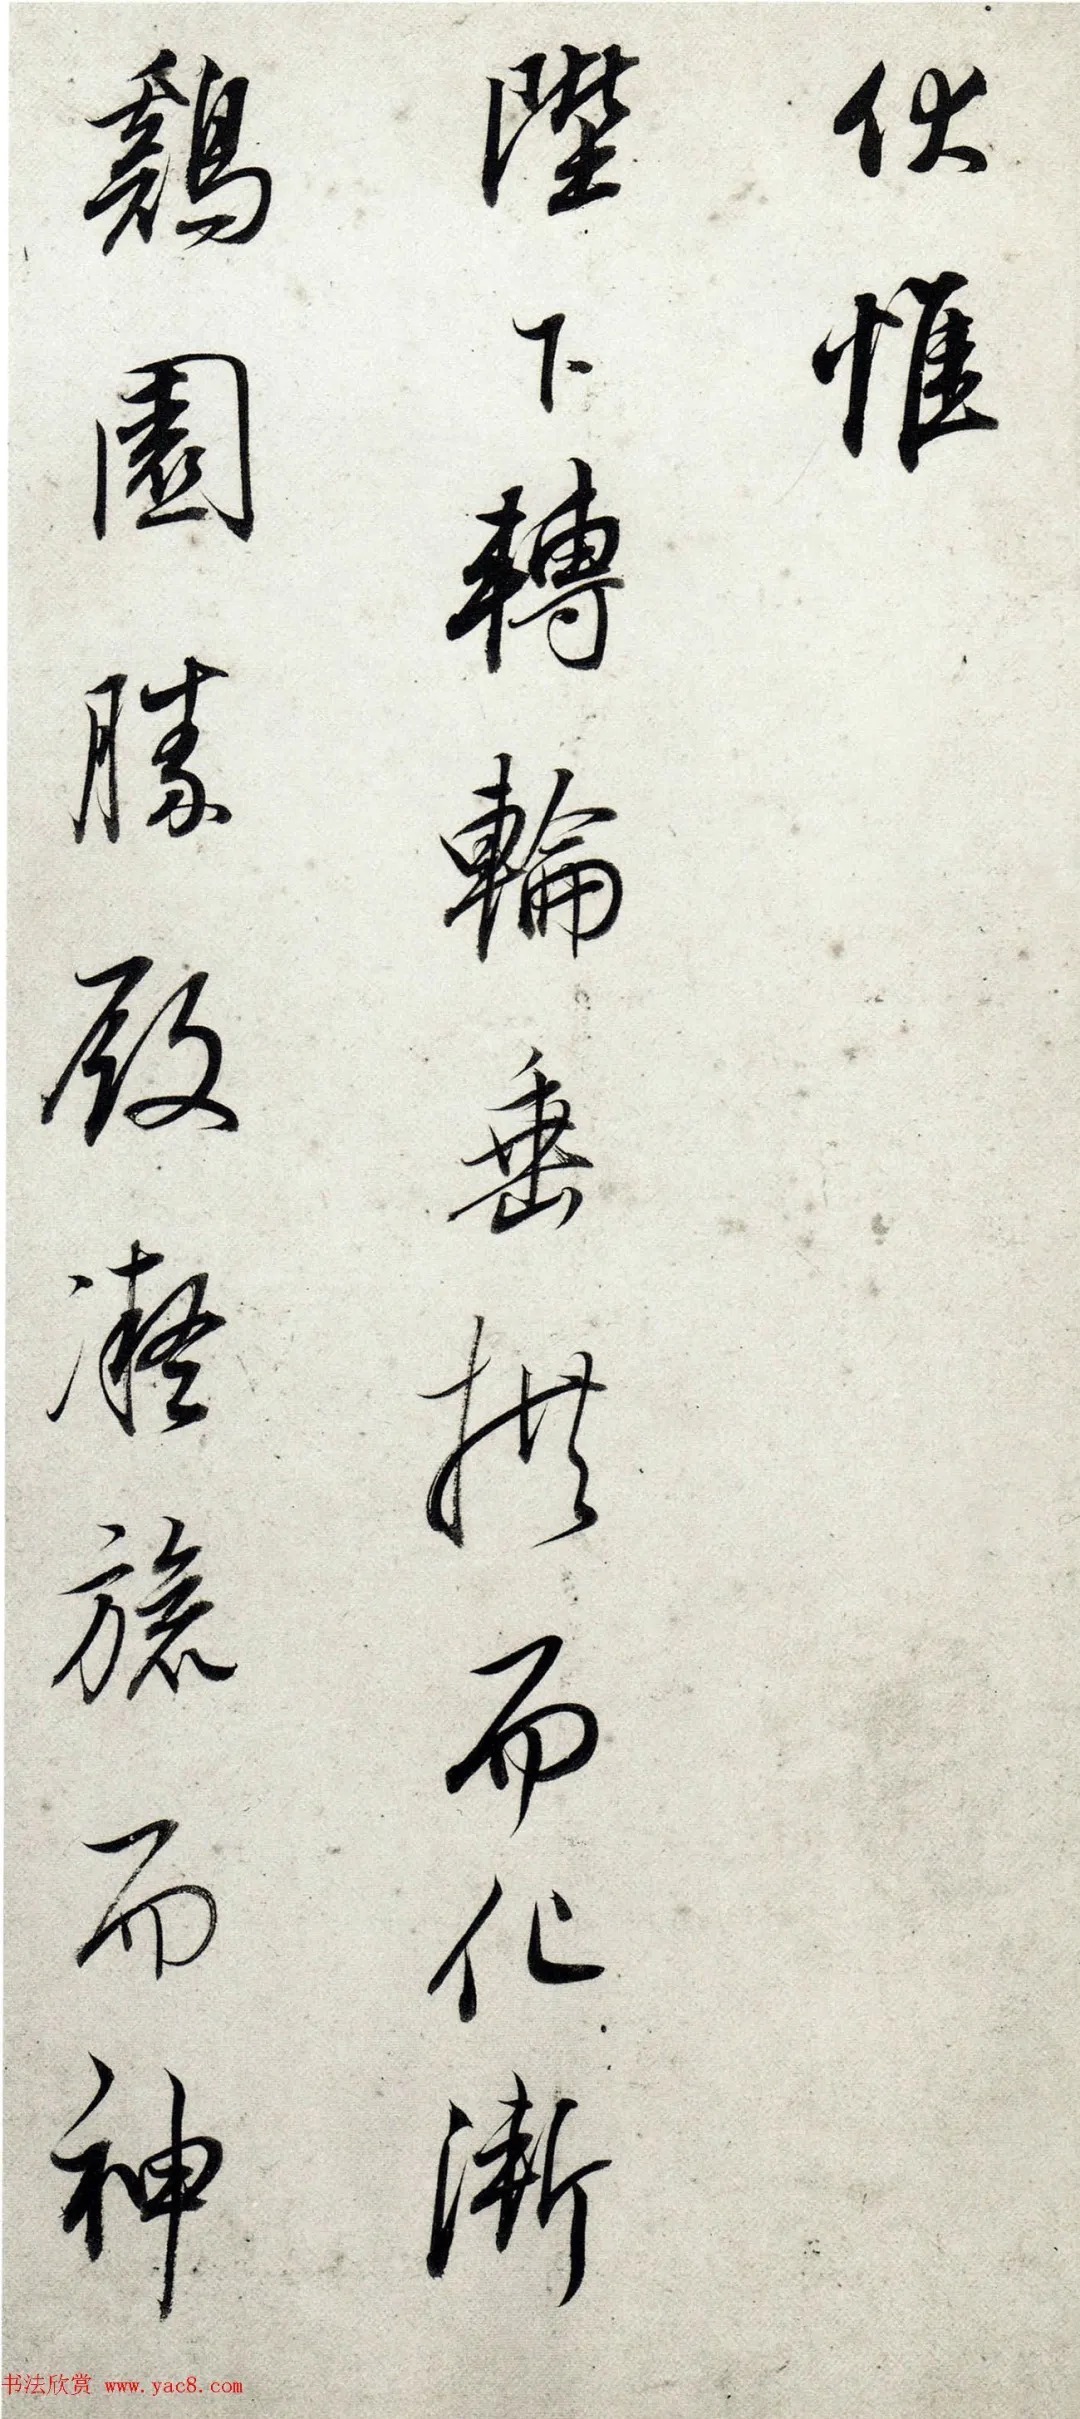 伏惟
陛下轉輪垂拱而化漸
鷄園勝殿凝旒而神
书法欣赏 www.yac8.com